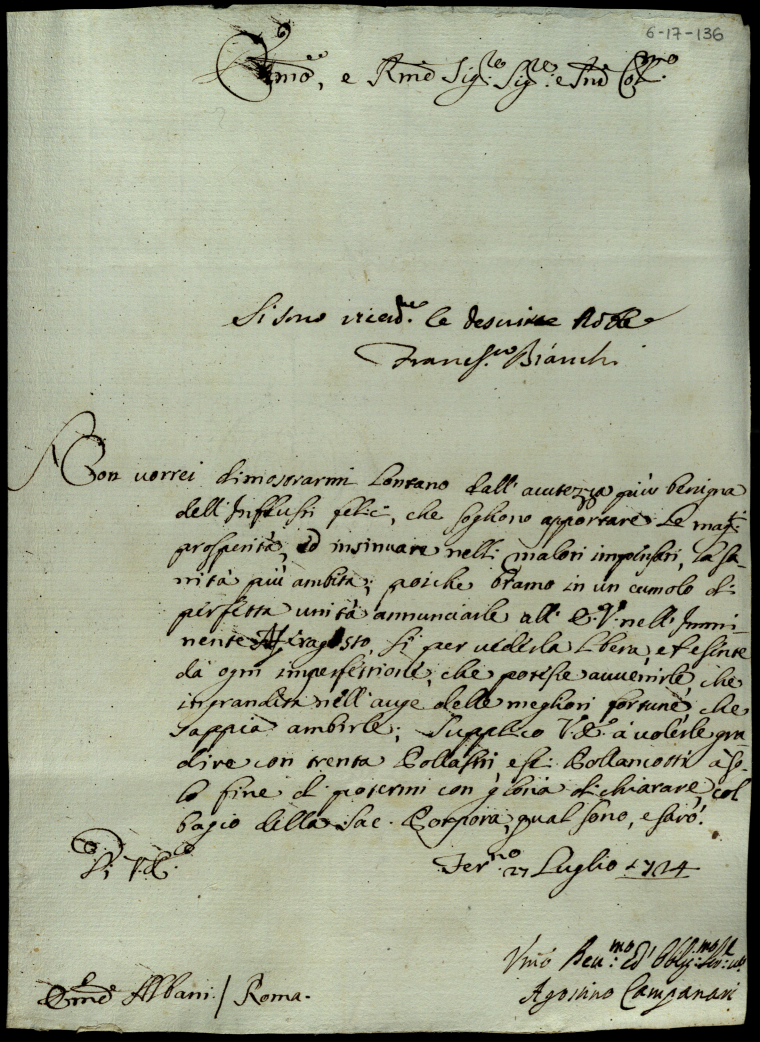 6-17-136
Em̃o, e Rm̃o Sig.re Sig.re e Pn̄e Col.mo
Si sono riceu.te le descritte Robbe
Franc.sco Bianchi
Non uorrei dimostrarmi lontano dall' acutezza più benigna
dell' Influssi felici, che sogliono apportare le mag.ri
prosperità, ed insinuare nelli malori impensati, la sa-
nità più ambita; poiche bramo in un cumolo di
perfetta unità annunciarle all' E. V. nell' Immi-
nente Feragosto, si per uederla libera, et esente
da ogni imperfettione, che potesse auuenirle, che
ingrandita nell' auge delle megliori fortune, che
sappia ambirle; Supplico V. E. à uolerle gra
dire con trenta Pollastri e sei Pollancotti à so-
lo fine di potermi con gloria dichiarare, col
bagio della Sac. Porpora, qual sono, e sarò.
Di V. E.
Fer.no 27 Luglio 1724
Vmo Deu.mo ed Obblig.mo Se.re
Agostino Campanari
Em̃o Albani / Roma.